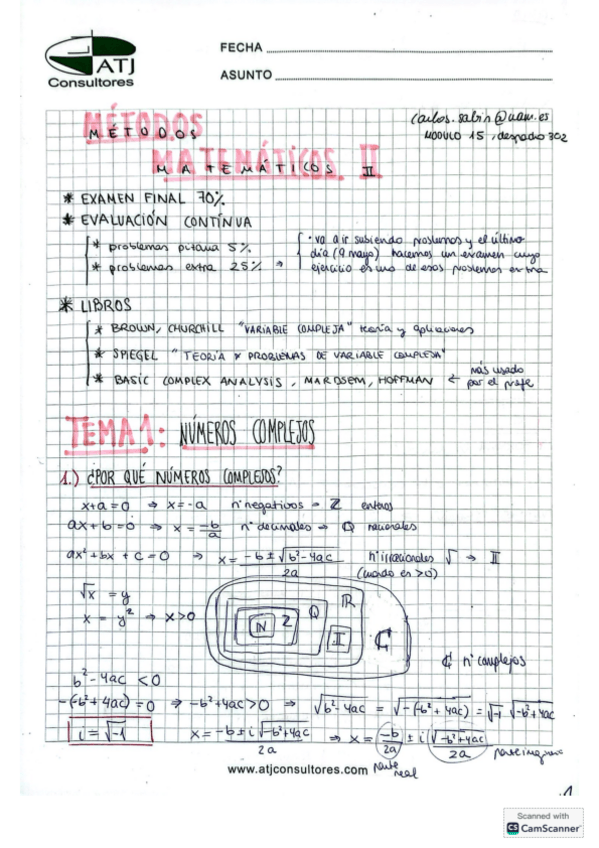 ATJ
Consultores
FECHA
ASUNTO
carlos.sabin@uam.es
MODULO 15, despacho 302
MÉTODOS
MATEMÁTICOS II
* EXAMEN FINAL 70%
* EVALUACIÓN CONTÍNUA
* problemas pizarra 5%
* problemas extra 25% →
· va a ir subiendo problemas y el último
día (9 mayo) hacemos un examen cuyo
ejercicio es uno de esos problemas extra
* LIBROS
* BROWN, CHURCHILL "VARIABLE COMPLEJA" teoría y aplicaciones
* SPIEGEL "TEORÍA Y PROBLEMAS DE VARIABLE COMPLEJA"
* BASIC COMPLEX ANALYSIS, MARDSEM, HOFFMAN ← más usado
por el profe
TEMA 1: NÚMEROS COMPLEJOS
1.) ¿POR QUÉ NÚMEROS COMPLEJOS?
x+a=0 ⇒ x=-a nº negativos → Z enteros
ax+b=0 ⇒ x = -b/a nº decimales → Q racionales
ax²+bx+c=0 → x = -b±√b²-4ac / 2a nº irracionales √ → II
(cuando es >0)
√x = y
x = y² ⇒ x>0
N Z Q I R C
C nº complejos
b²-4ac <0
-(-b²+4ac)=0 ⇒ -b²+4ac>0 ⇒ √b²-4ac = √-(-b²+4ac) = √-1 √-b²+4ac
i=√-1
x = -b±i√-b²+4ac / 2a ⇒ x = -b/2a ± i √-b²+4ac / 2a
parte real
parte imaginaria
www.atjconsultores.com
1
Scanned with
CS CamScanner